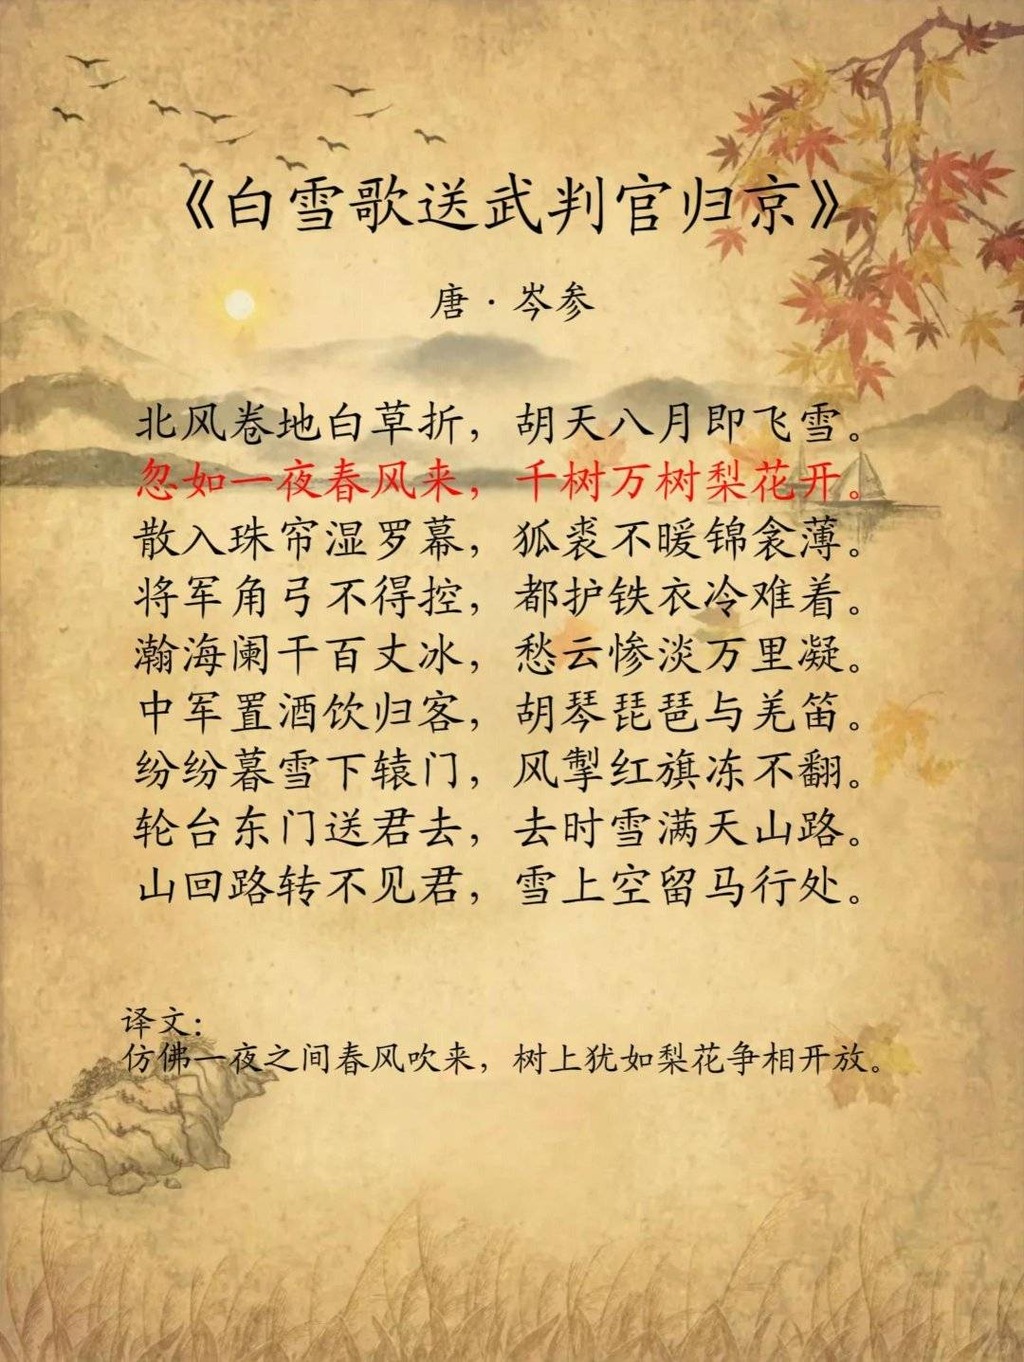 《白雪歌送武判官归京》
唐·岑参
北风卷地白草折，胡天八月即飞雪。
忽如一夜春风来，千树万树梨花开。
散入珠帘湿罗幕，狐裘不暖锦衾薄。
将军角弓不得控，都护铁衣冷难着。
瀚海阑干百丈冰，愁云惨淡万里凝。
中军置酒饮归客，胡琴琵琶与羌笛。
纷纷暮雪下辕门，风掣红旗冻不翻。
轮台东门送君去，去时雪满天山路。
山回路转不见君，雪上空留马行处。
译文：
仿佛一夜之间春风吹来，树上犹如梨花争相开放。